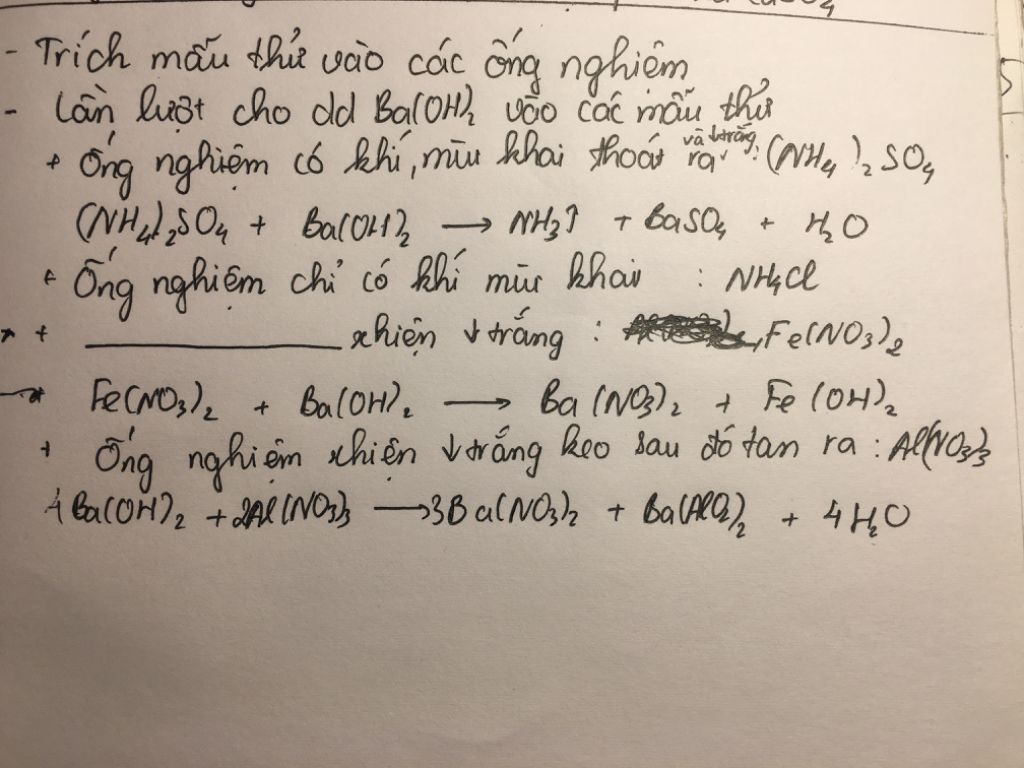 CaSO₄
- Trích mẫu thử vào các ống nghiệm
- Lần lượt cho dd Ba(OH)₂ vào các mẫu thử
+ Ống nghiệm có khí, mùi khai thoát ra và ↓ trắng : (NH₄)₂SO₄
(NH₄)₂SO₄ + Ba(OH)₂ → NH₃↑ + BaSO₄ + H₂O
+ Ống nghiệm chỉ có khí mùi khai : NH₄Cl
+ ___ xhiện ↓ trắng : Fe(NO₃)₂
Fe(NO₃)₂ + Ba(OH)₂ → Ba(NO₃)₂ + Fe(OH)₂
+ Ống nghiệm xhiện ↓ trắng keo sau đó tan ra : Al(NO₃)₃
4Ba(OH)₂ + 2Al(NO₃)₃ → 3Ba(NO₃)₂ + Ba(AlO₂)₂ + 4H₂O